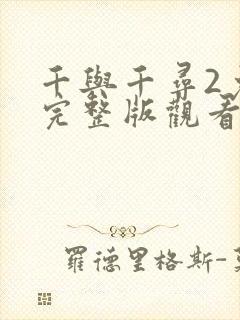 千與千尋2
完整版觀看
羅德里格斯-